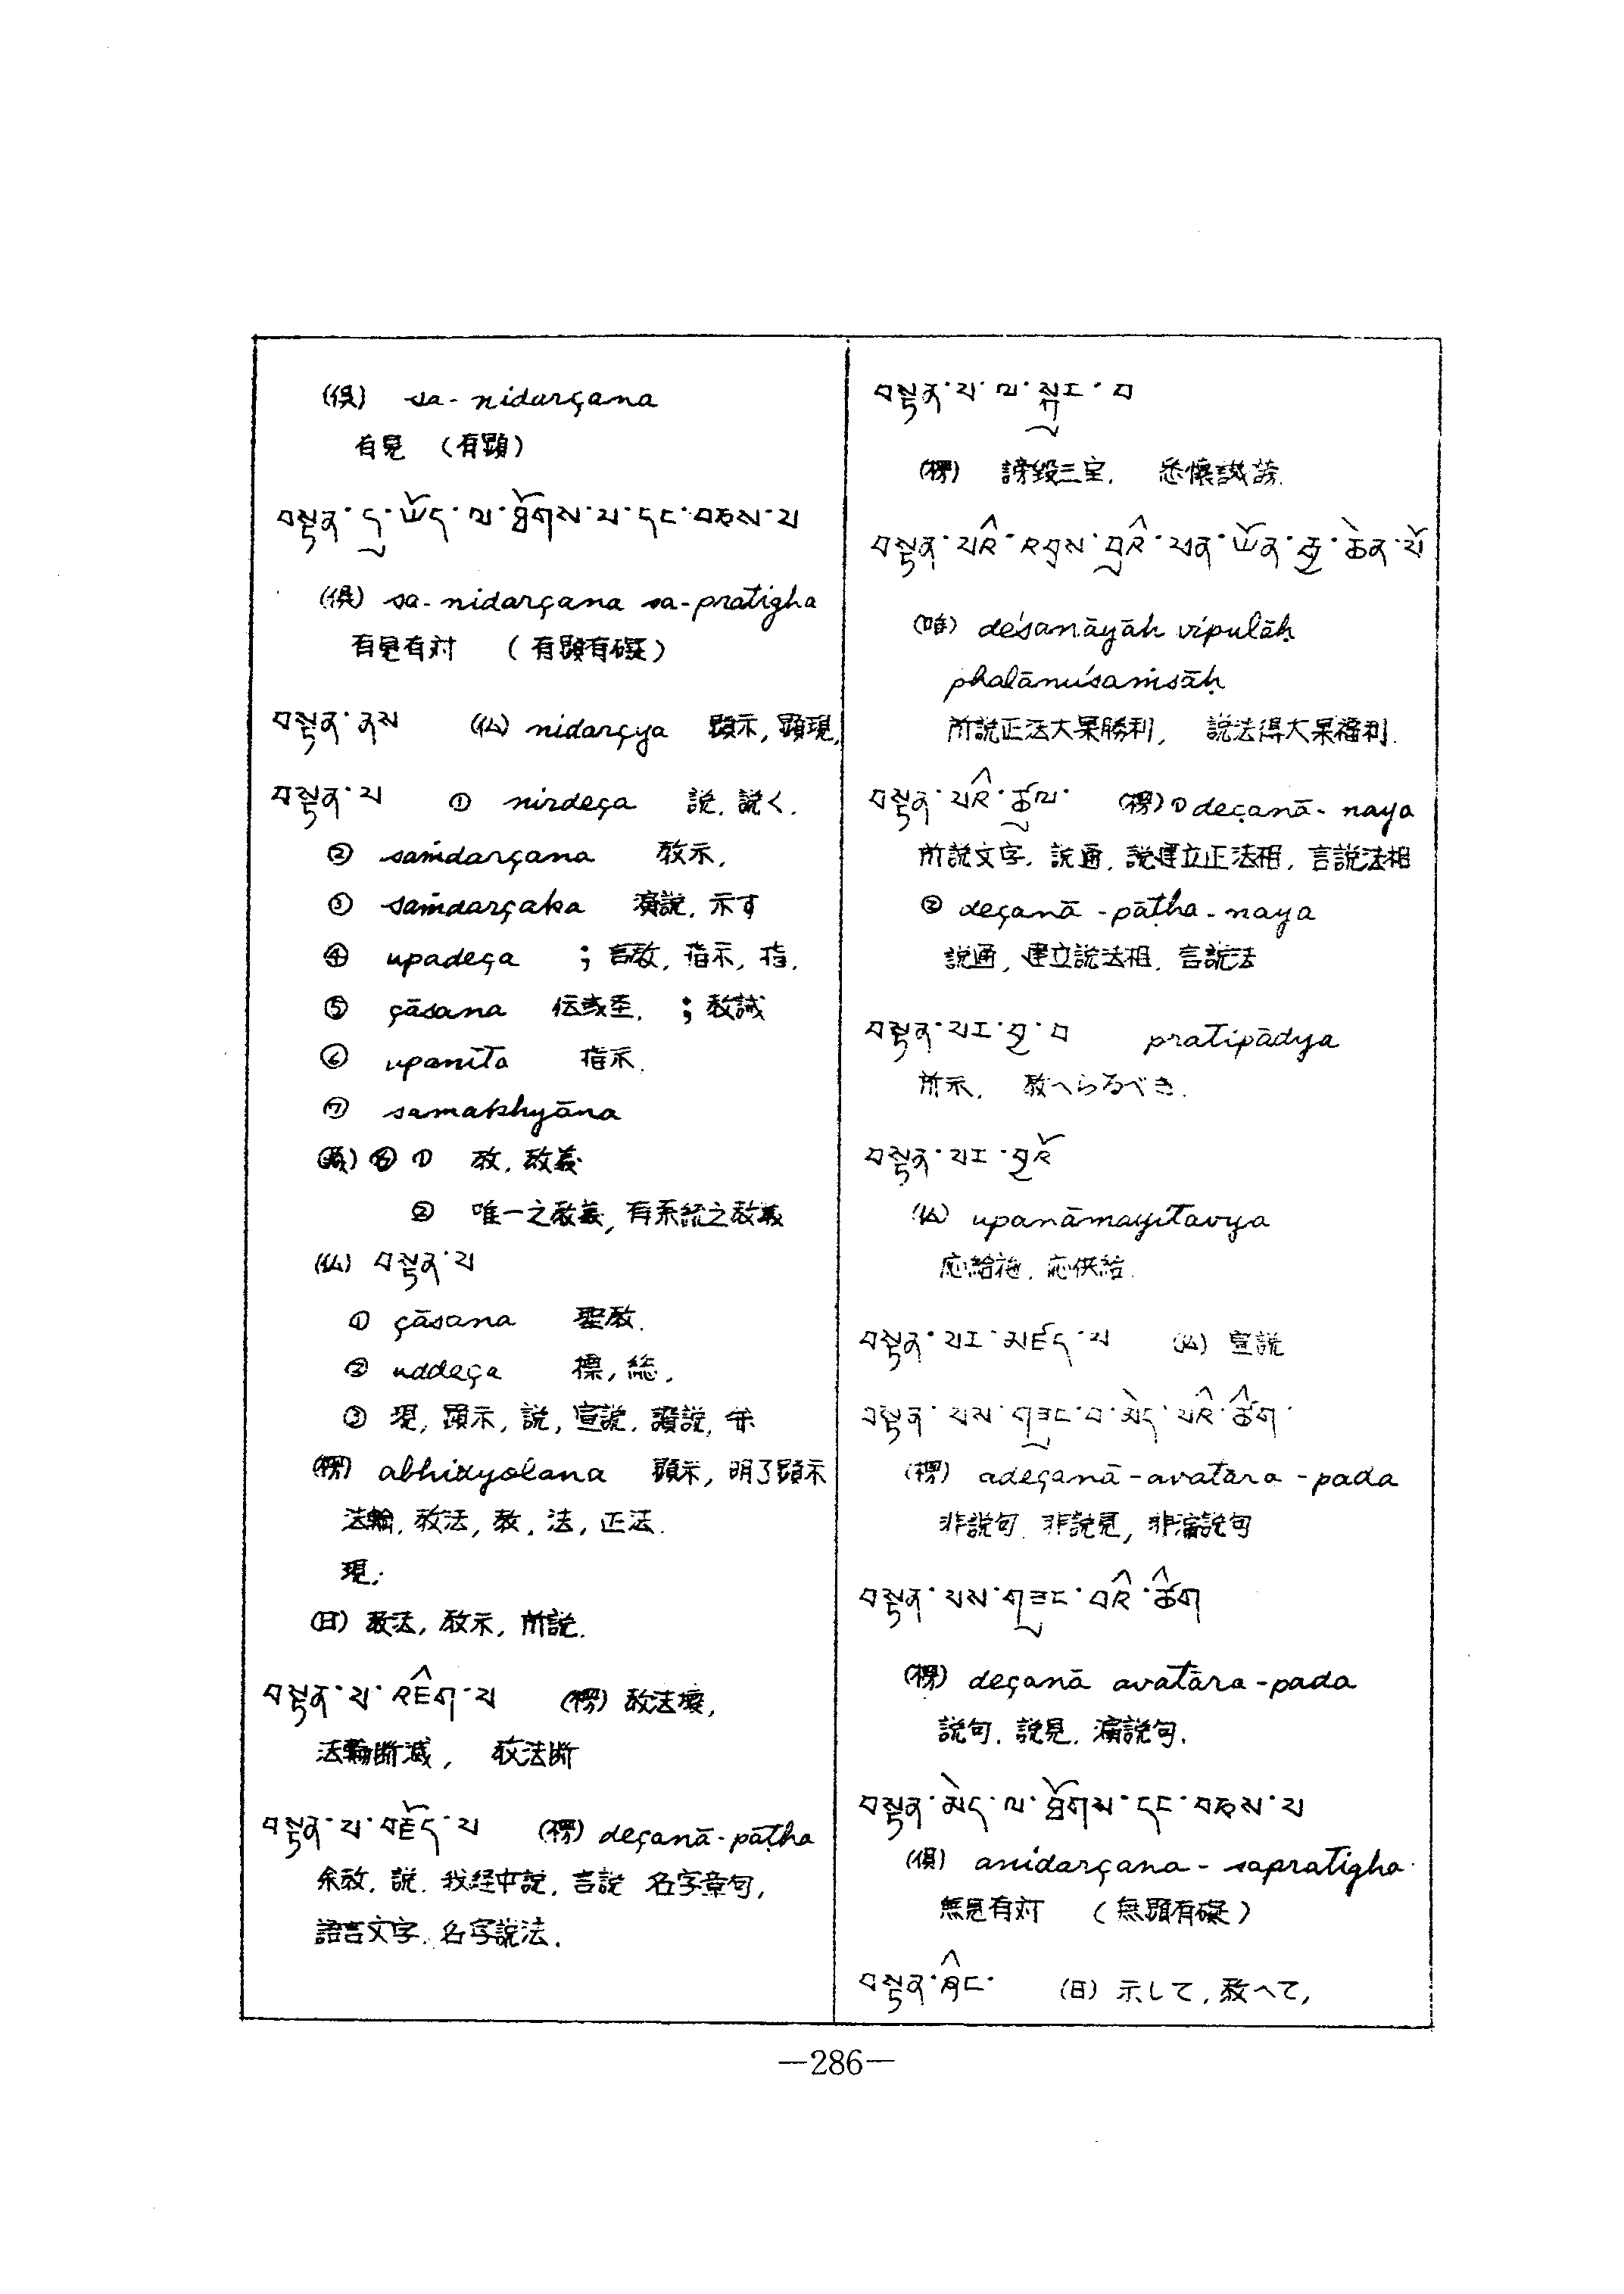 (倶) sa-nidarçana
有見 (有顕)
བསྟན་དུ་ཡོད་ལ་ཐོགས་པ་དང་བཅས་པ
(倶) sa-nidarçana sa-pratigha
有見有対 (有顕有礙)
བསྟན་ནས (仏) nidarçya 顕示, 顕現,
བསྟན་པ ① nirdeça 説, 説く.
② saṁdarçana 教示,
③ saṁdarçaka 演説, 示す
④ upadeça ; 言教, 指示, 指,
⑤ çāsana ; 教誡
⑥ upanīta 指示.
⑦ samakhyāna
① 教, 教義
② 唯一之教義, 有系統之教義
(仏) བསྟན་པ
① çāsana 聖教.
② uddeça 標, 総,
③ 現, 顕示, 説, 宣説, 讃説,
(楞) abhidyotana 顕示, 明了顕示
法輪, 教法, 教, 法, 正法.
現;
(日) 教法, 教示, 所説.
བསྟན་པ་འཇིག་པ (楞) 教法壊,
法輪断滅, 教法断
བསྟན་པ་བརྗོད་པ (楞) deçanā-pāṭha
余教, 説, 我経中説, 言説 名字章句,
語言文字, 名字説法.
བསྟན་པ་ལ་སྐུར་བ
(楞) 謗毀三宝, 悉懐譏謗.
བསྟན་པའི་འབྲས་བུའི་ཕན་ཡོན་རྒྱ་ཆེན་པོ
(唯) deśanāyāḥ vipulāḥ
phalānuśaṁsāḥ
所説正法大果勝利, 説法得大果福利.
བསྟན་པའི་ཚུལ་ (楞) ① deçanā-naya
所説文字, 説通, 説建立正法相, 言説法相
② deçanā-pāṭha-naya
説通, 建立説法相, 言説法
བསྟན་པར་བྱ་བ pratipādya
所示, 教へらるべき.
བསྟན་པར་བྱའོ
(仏) upanāmayitavya
応給施, 応供給.
བསྟན་པར་མཛད་པ (仏) 宣説
བསྟན་པས་གཟུང་བ་མེད་པའི་ཚིག་
(楞) adeçanā-avatāra-pada
非説句, 非説見, 非演説句
བསྟན་པས་གཟུང་བའི་ཚིག
(楞) deçanā avatāra-pada
説句, 説見, 演説句.
བསྟན་མེད་ལ་ཐོགས་དང་བཅས་པ
(倶) anidarçana-sapratigha
無見有対 (無顕有礙)
བསྟན་ཤིང་ (日) 示して, 教へて,
—286—